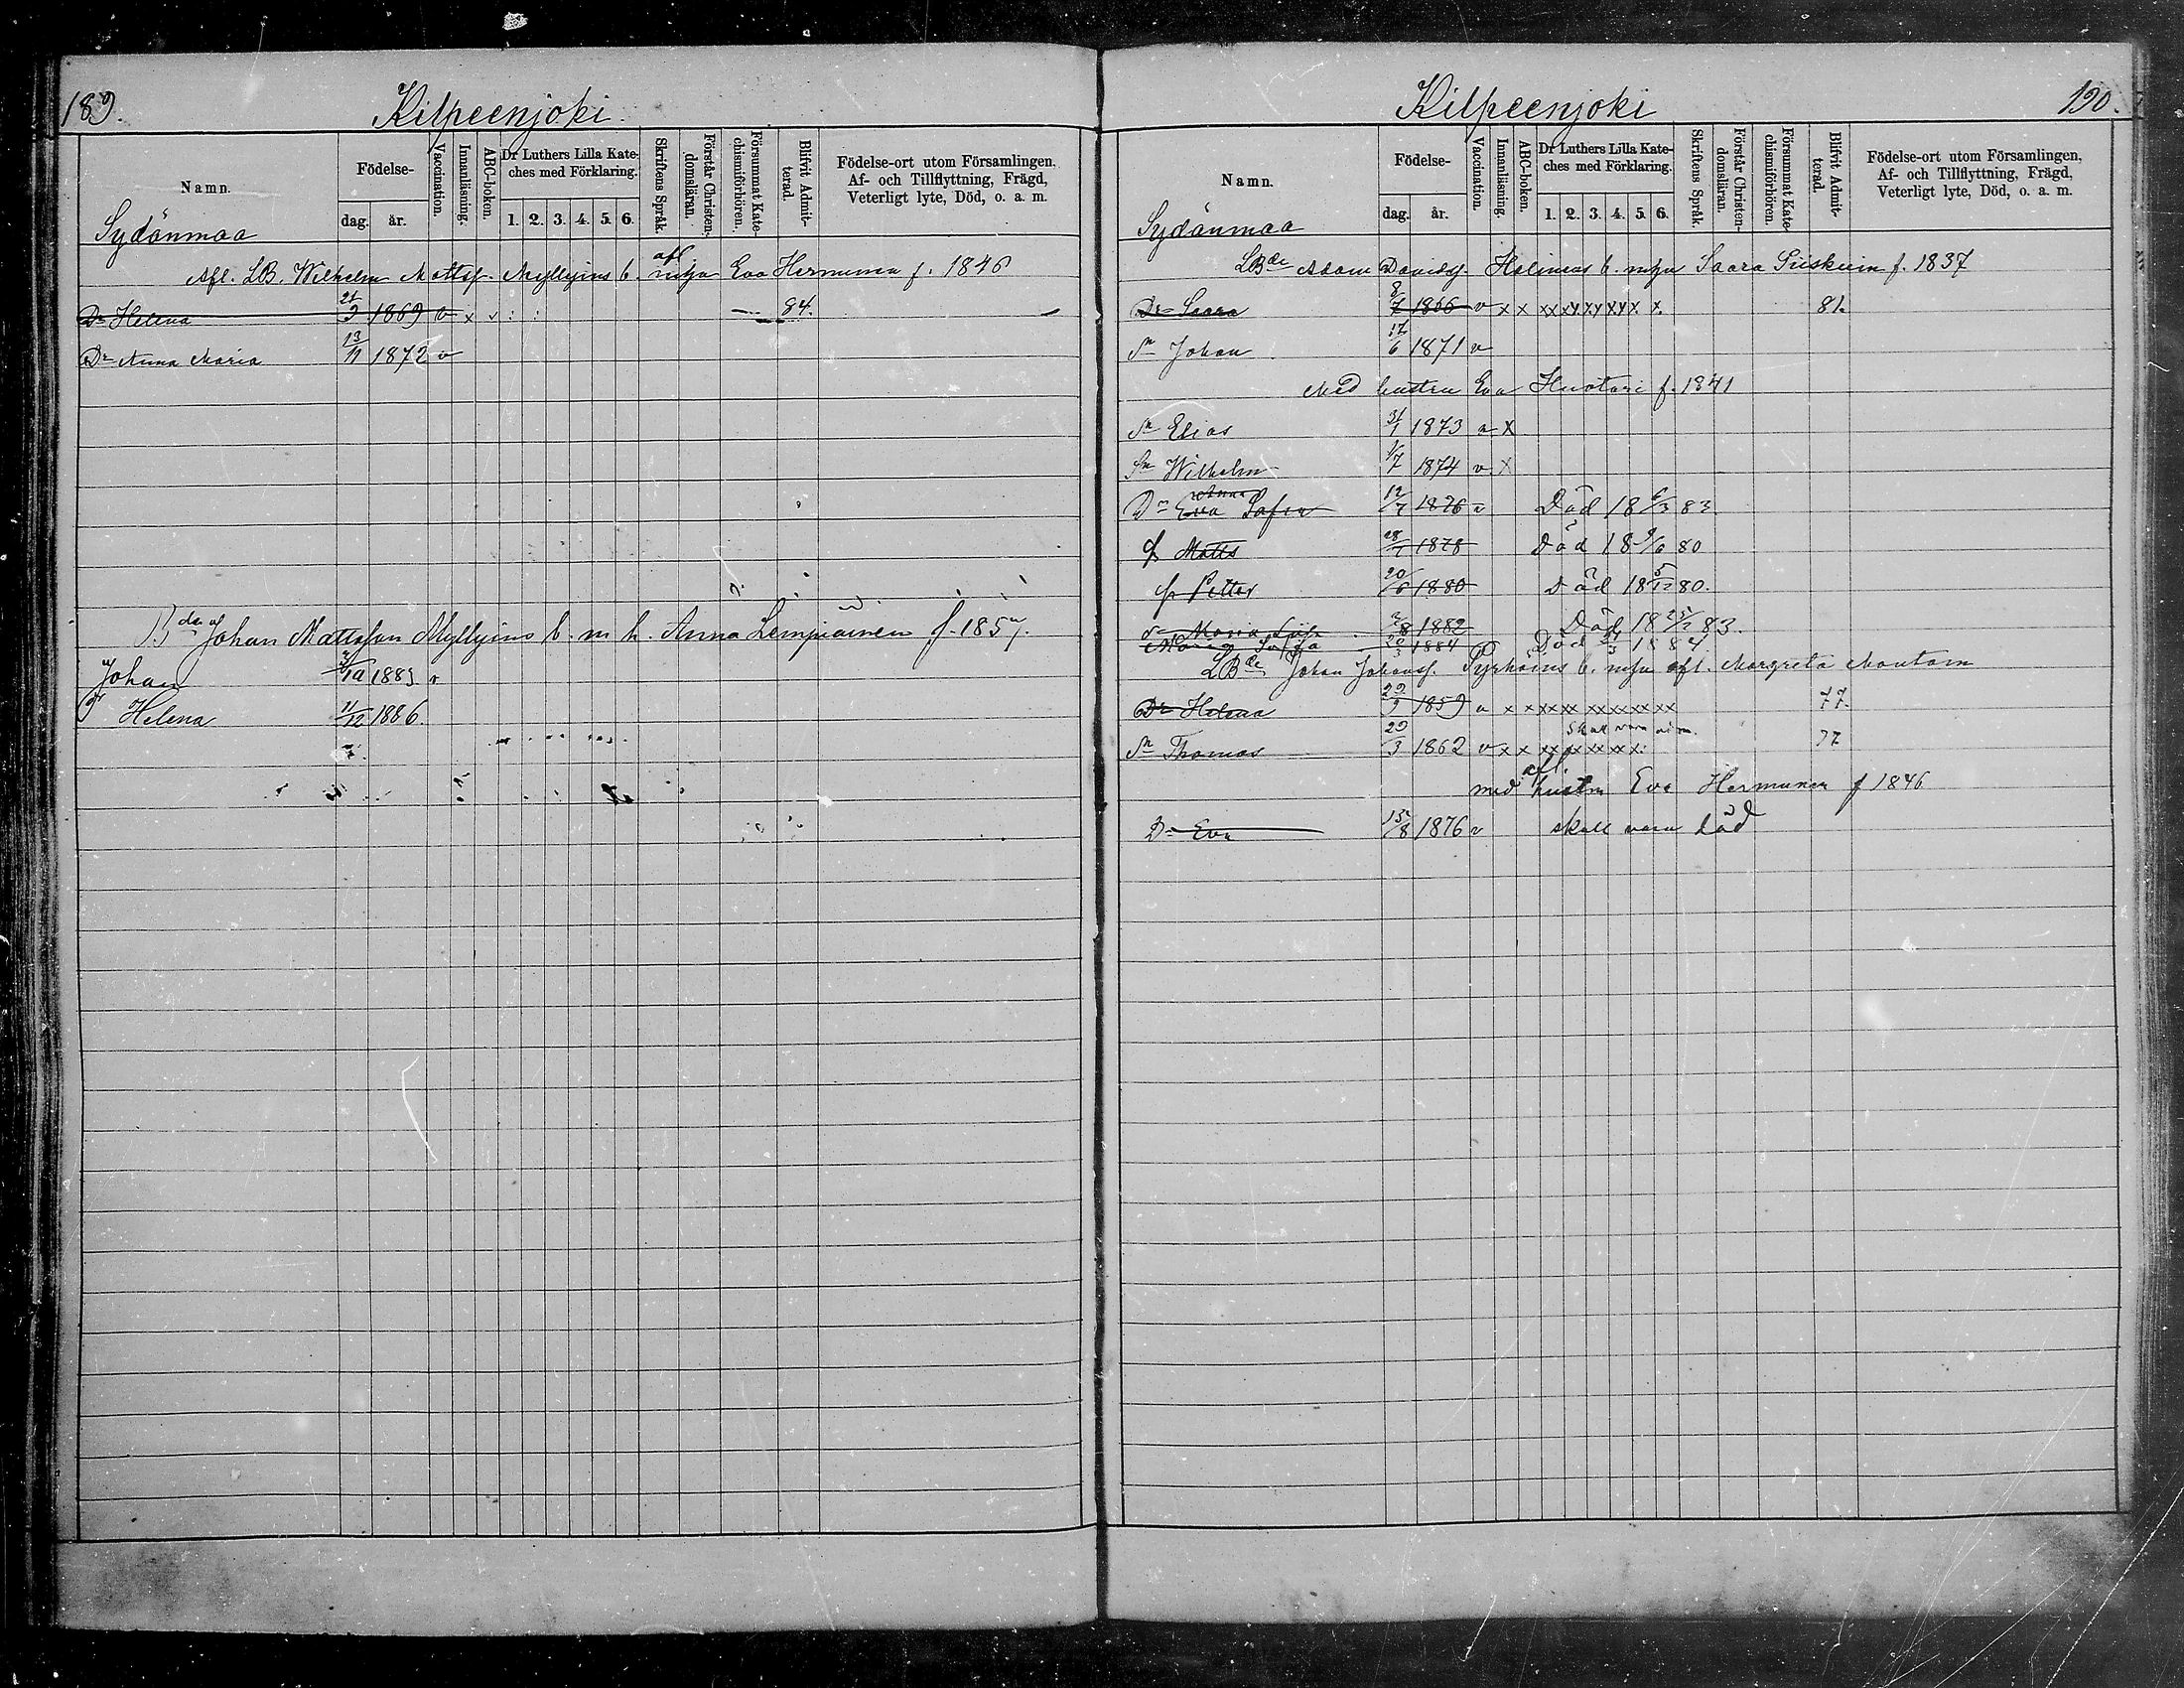 189.
Kilpeenjoki
Namn.
Födelse-
dag. år.
Vaccination.
Innanläsning.
ABC-boken.
Dr Luthers Lilla Kate-
ches med Förklaring.
1. 2. 3. 4. 5. 6.
Skriftens Språk.
Förstår Christen-
domsläran.
Försummat Kate-
chismiförhören.
Blifvit Admit-
terad.
Födelse-ort utom Församlingen,
Af- och Tillflyttning, Frägd,
Veterligt lyte, Död, o. a. m.
Sydänmaa
afl
Afl. LB. Wilhelm Mattsf. Myllyins b. mhu Eva Hermunen f. 1846
Dr Helena 21/9 1869 v x v : : 84.
Dr Anna Maria 13/11 1872 v
Johan Mattsson Myllyins b. m. h. Anna Lempiäinen f. 1857.
Johan /10 1883 v
Helena 11/12 1886.
190.
Kilpeenjoki
Namn.
Födelse-
dag. år.
Vaccination.
Innanläsning.
ABC-boken.
Dr Luthers Lilla Kate-
ches med Förklaring.
1. 2. 3. 4. 5. 6.
Skriftens Språk.
Förstår Christen-
domsläran.
Försummat Kate-
chismiförhören.
Blifvit Admit-
terad.
Födelse-ort utom Församlingen,
Af- och Tillflyttning, Frägd,
Veterligt lyte, Död, o. a. m.
Sydänmaa
LBde Adam Davidsf. Holimas b. mhu Saara Siiskuin f. 1837
Dr Saara 8/7 1866 v x x xx xy xy xy x x 81.
Sn Johan 17/6 1871 v
Med hustru Eva Huotari f. 1841
Sn Elias 31/1 1873 v x
Sn Wilhelm 1/7 1874 v x
Anna
Dr Eva Sofia 12/7 1876 v Död 18 6/3 83
Matts 28/7 1878 Död 18 9/6 80
Petter 20/6 1880 Död 18 5/12 80.
Maria 1882 Död 18 25/2 83.
Maria Sofia 1884 Död 1884
LBde Johan Johansf. Pyrhöins b. mhu afl. Margreta Mantoin
Dr Helena 29/9 1859 v x x xx xx xx xx xx xx 77.
skall vara
Sn Thomas 29/3 1862 v x x xx xx xx xx x: 77
afl.
med hustru Eva Hermunen f 1846
Dr Eva 15/8 1876 v skall vara död